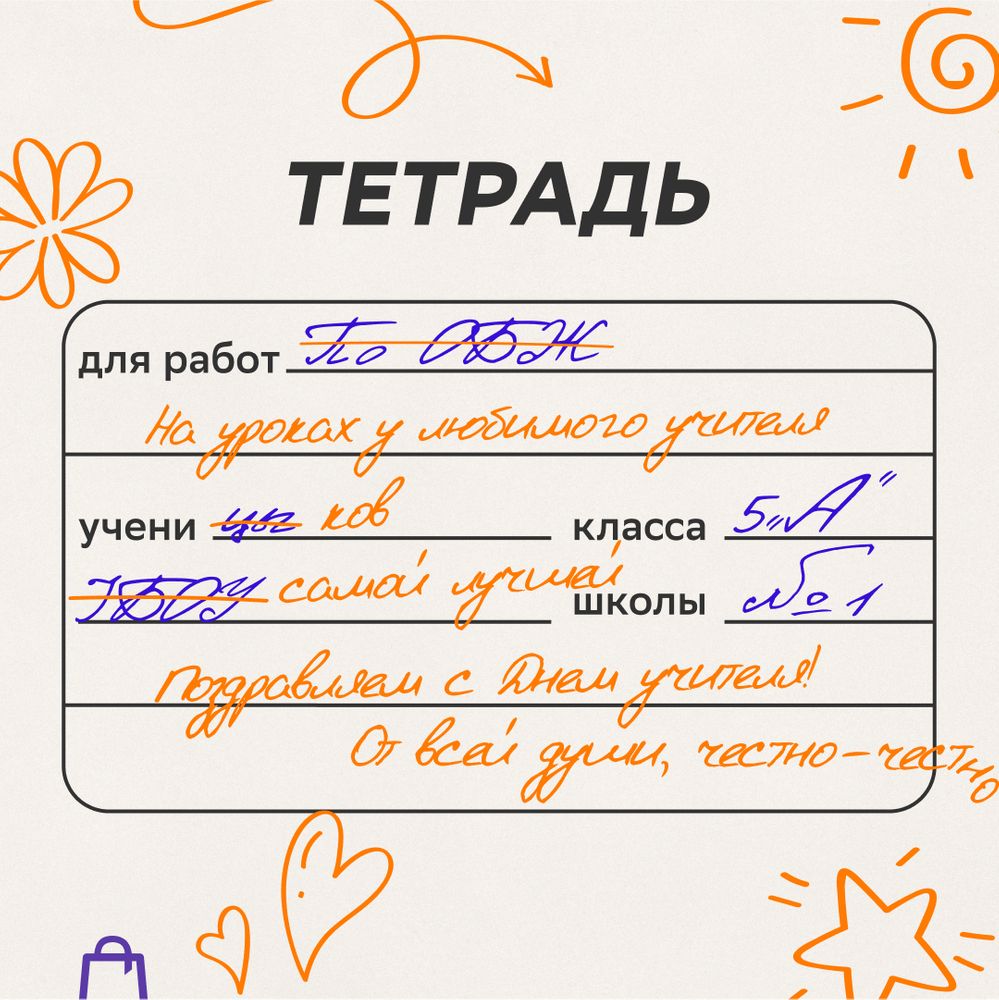 ТЕТРАДЬ
для работ По ОБЖ
На уроках у любимого учителя
учени цы ков класса 5 „А“
ГБОУ самой лучшей школы №1
Поздравляем с Днем учителя!
От всей души, честно-честно